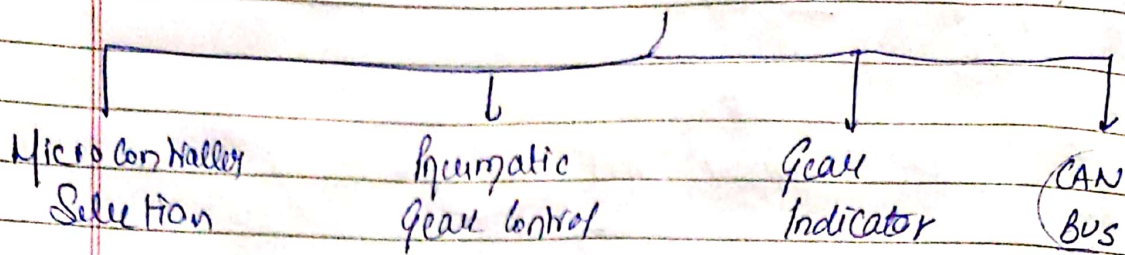 Microcontroller
Selection
Pneumatic
Gear Control
Gear
Indicator
CAN
BUS